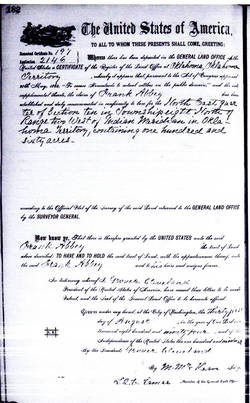 The United States of America,
TO ALL TO WHOM THESE PRESENTS SHALL COME, GREETING:
Homestead Certificate No. 197
Application 2146
Whereas there has been deposited in the GENERAL LAND OFFICE of the
United States a CERTIFICATE of the Register of the Land Office at Oklahoma, Oklahoma
Territory, whereby it appears that pursuant to the Act of Congress approved
20th May, 1862, "To secure Homesteads to actual settlers on the public domain," and the acts
supplemental thereto, the claim of Frank Abbey has been
established and duly consummated in conformity to law for the North East quar-
ter of Section ten in Township eight North of
Range two West of Indian Meridian in Okla-
homa Territory, containing one hundred and
sixty acres.
according to the Official Plat of the Survey of the said Land returned to the GENERAL LAND OFFICE
by the SURVEYOR GENERAL.
Now know ye, That there is therefore granted by the UNITED STATES unto the said
Frank Abbey the tract of Land
above described: TO HAVE AND TO HOLD the said tract of Land, with the appurtenances thereof, unto
the said Frank Abbey and to his heirs and assigns forever.
In testimony whereof I, Grover Cleveland
President of the United States of America, have caused these letters to be made
Patent, and the Seal of the General Land Office to be hereunto affixed.
Given under my hand, at the City of Washington, the thirty first
day of August, in the year of Our Lord one
thousand eight hundred and ninety four, and of the
Independence of the United States the one hundred and nineteenth
By the President: Grover Cleveland
By M. McKean Sec'y.
L.Q.C. Lamar
Recorder of the General Land Office